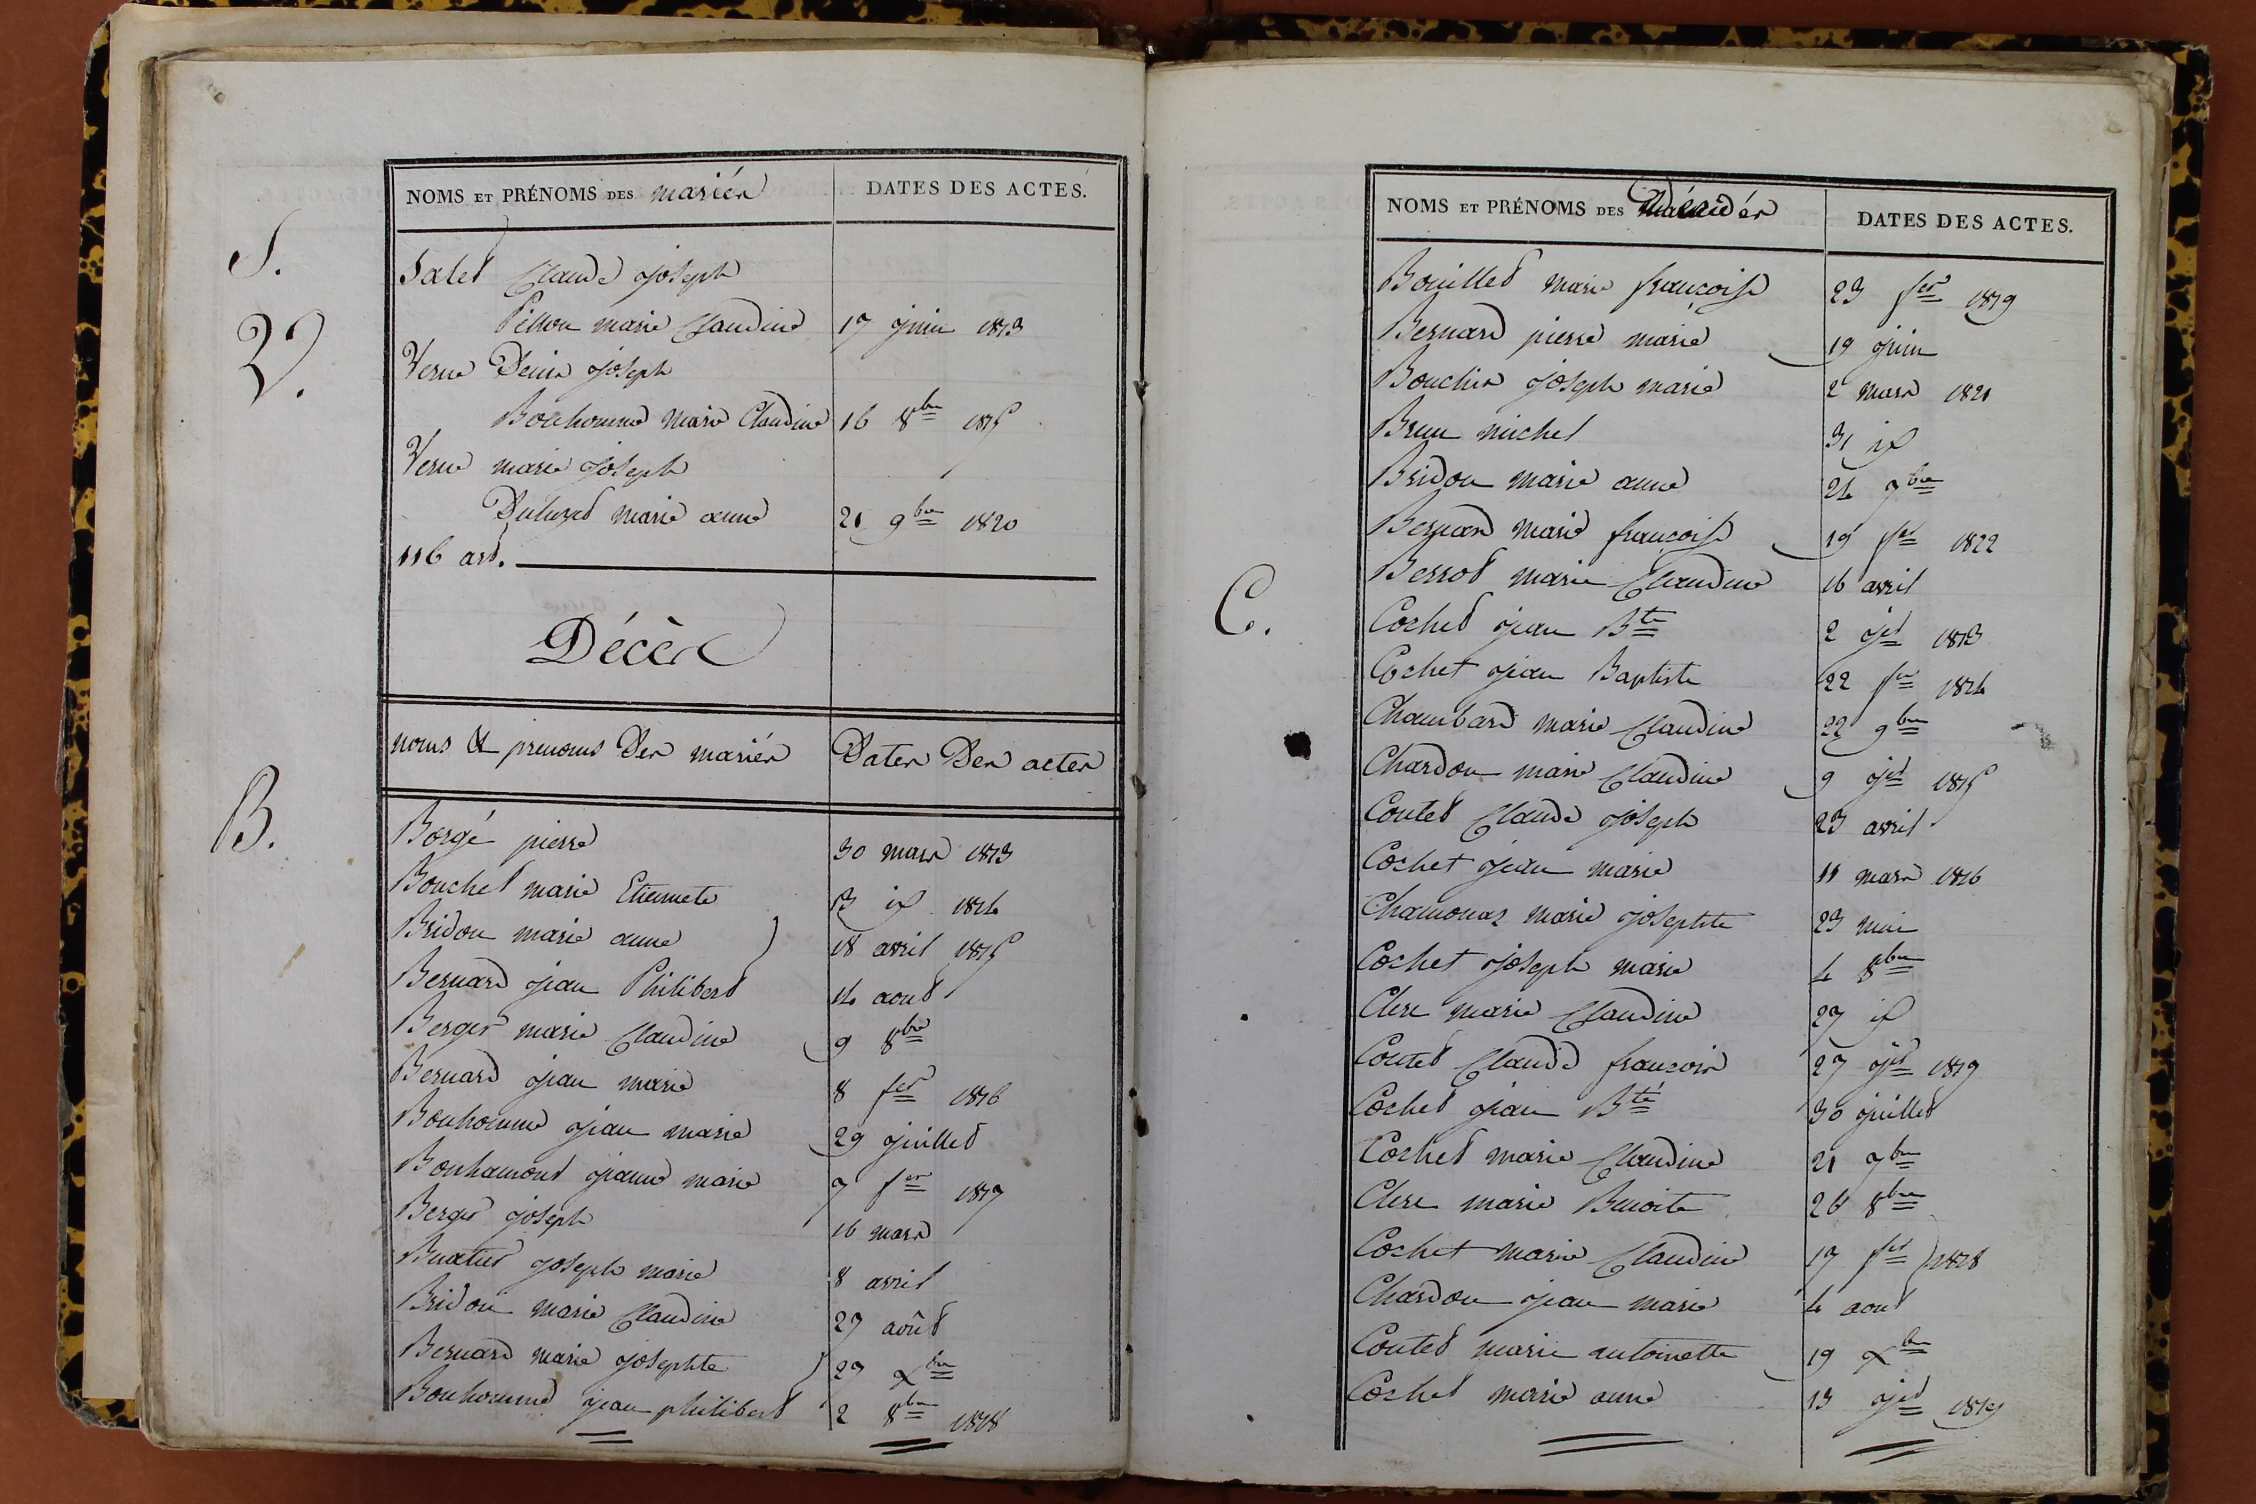 NOMS ET PRÉNOMS DES mariés DATES DES ACTES.
S. Salet Claude joseph
Pillon marie Claudine 17 juin 1813
V. Verne Denis joseph
Bonhomme marie Claudine 16 8bre 1815
Verne marie joseph
marie anne 21 9bre 1820
116 art.
Décès
noms & prenoms Des mariés Dates Des actes
B. Borgé pierre 30 mars 1813
Bouchet marie Etiennete 13 id 1814
Bridon marie anne 18 avril 1815
Bernard jean Philibert 14 aout
Berger marie Claudine 9 8bre
Bernard jean marie 8 fer 1816
Bonhomme jean marie 29 juillet
Bonhamont jeanne marie 7 fer 1817
Berger joseph 16 mars
Buatier joseph marie 8 avril
Bridon marie Claudine 27 août
Bernard marie josephte 27 Xbre
Bonhomme jean philibert 2 8bre 1818
NOMS ET PRÉNOMS DES Décédés DATES DES ACTES.
Bouillet marie françoise 23 fer 1819
Bernard pierre marie 19 juin
Bouchin joseph marie 2 mars 1821
Brun michel 31 id
Bridon marie anne 24 7bre
Bernard marie françoise 19 fer 1822
Berrot marie Claudine 16 avril
C. Cochet jean Bte 2 jet 1813
Cochet jean Baptiste 22 fer 1814
Chambard marie Claudine 22 9bre
Chardon marie Claudine 9 jet 1815
Coutet Claude joseph 23 avril
Cochet jean marie 11 mars 1816
Chamonaz marie josephte 23 mai
Cochet joseph marie 4 8bre
Clere marie Claudine 27 id
Coutet Claude françois 27 jet 1817
Cochet jean Bte 30 juillet
Cochet marie Claudine 21 7bre
Clere marie Benoite 26 8bre
Cochet marie Claudine 17 fer 1818
Chardon jean marie 4 aout
Coutet marie antoinette 19 Xbre
Cochet marie anne 13 jet 1819